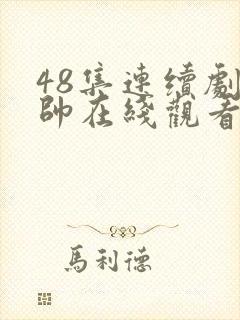 48集連續劇
帥在綫觀看
馬利德